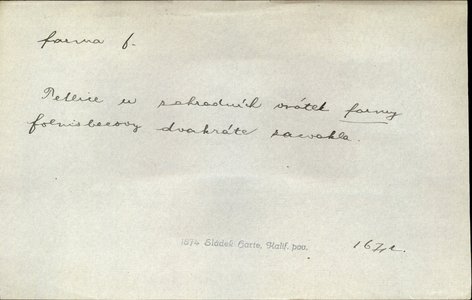 farma f.
Petlice u zahradních vrátek farmy
folnisbeeovy dvakráte zacvakla.
1874 Sládek Harte, Kalif. pov.